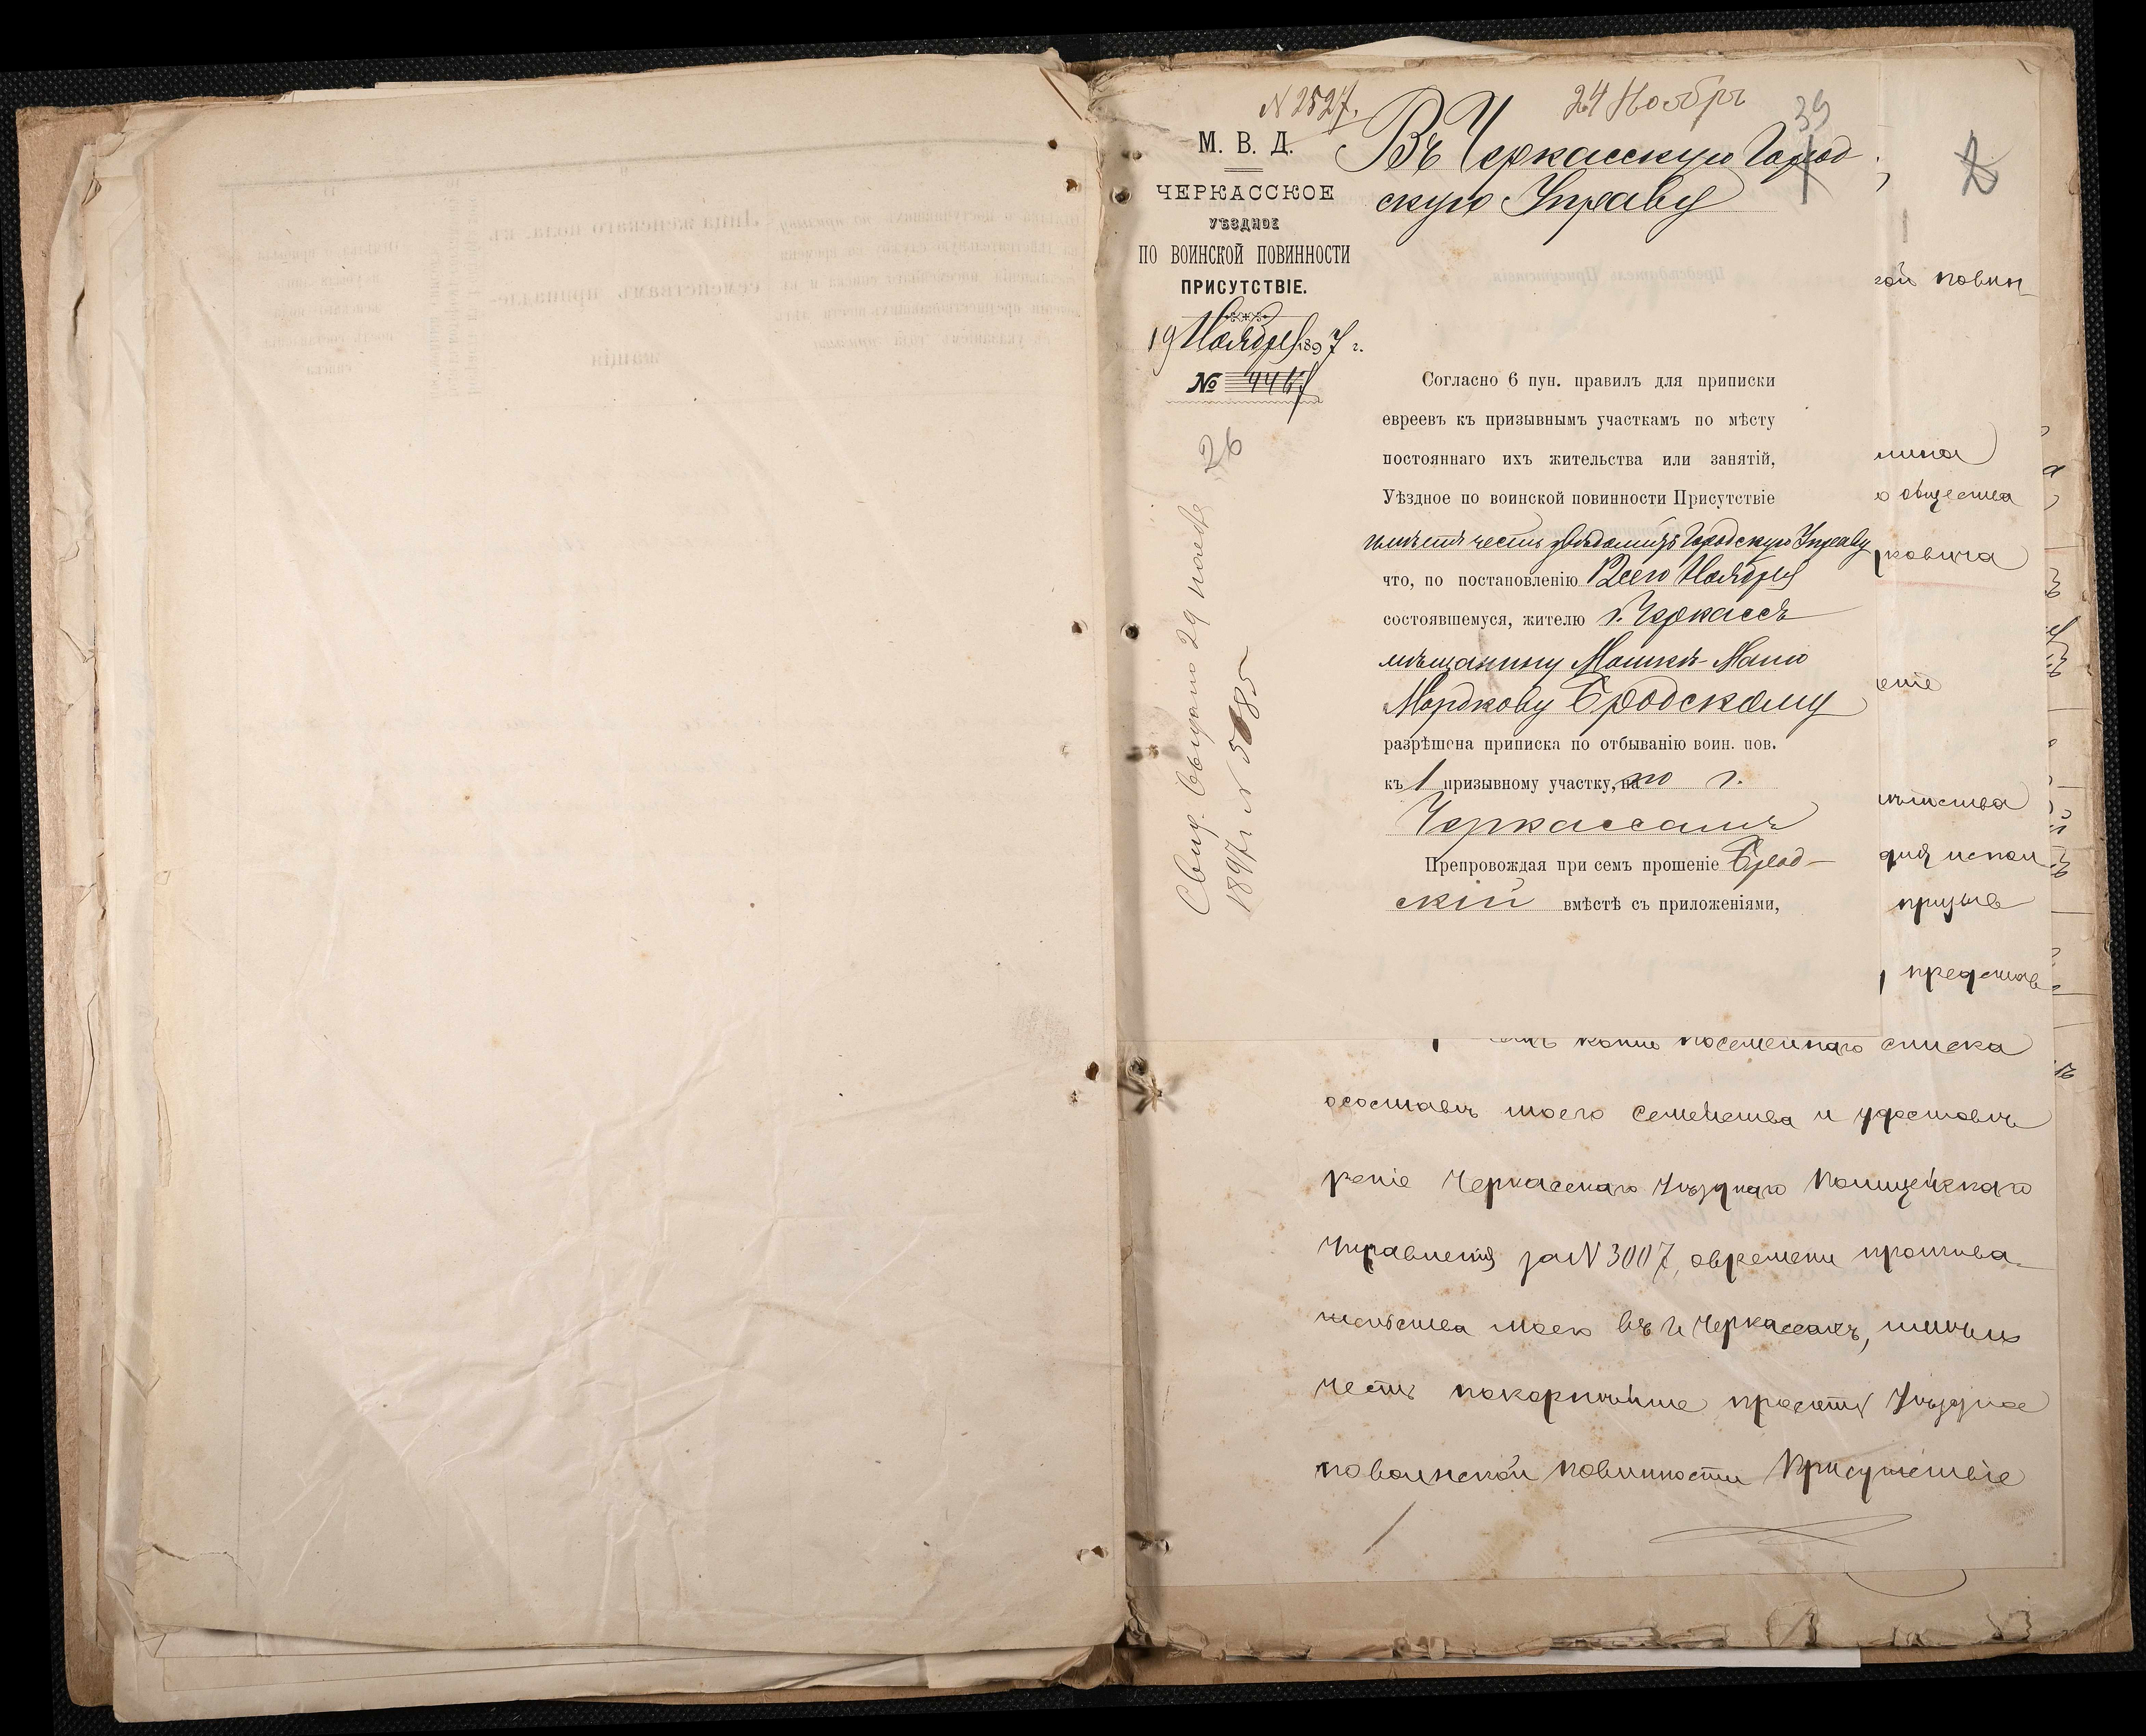 N 2527.
24 Ноябрь
39
М. В. Д.
ЧЕРКАССКОЕ
УѢЗДНОЕ
ПО ВОИНСКОЙ ПОВИННОСТИ
ПРИСУТСТВІЕ.
19 Ноября 1897 г.
№
26
Свид. выдано 29 1897 г. N
Въ Черкасскую Город
скую Управу
Согласно 6 пун. правилъ для приписки
евреевъ къ призывнымъ участкамъ по мѣсту
постояннаго ихъ жительства или занятій,
Уѣздное по воинской повинности Присутствіе
имѣетъ честь увѣдомить Городскую Управу
что, по постановленію 12сего Ноября
состоявшемуся, жителю г. Черкассъ
мѣщанину Мошкѣ-
Мордкову Бродскому
разрѣшена приписка по отбыванію воин. пов.
къ 1 призывному участку, на по г.
Черкассамъ
Препровождая при семъ прошеніе Брод-
скій вмѣстѣ съ приложеніями,
2
кой повин
о общества
ковича
еніе
призыв
представ
копію посемейнаго списка
осоставѣ моего семейства и удостовѣ
реніе Черкасскаго Уѣзднаго Полицейскаго
Управленія за N 3007, овремени прожива
тельства моего въ г. Черкассахъ, имѣю
честь покорнѣйше просить Уѣздное
по воинской повинности Присутствіе